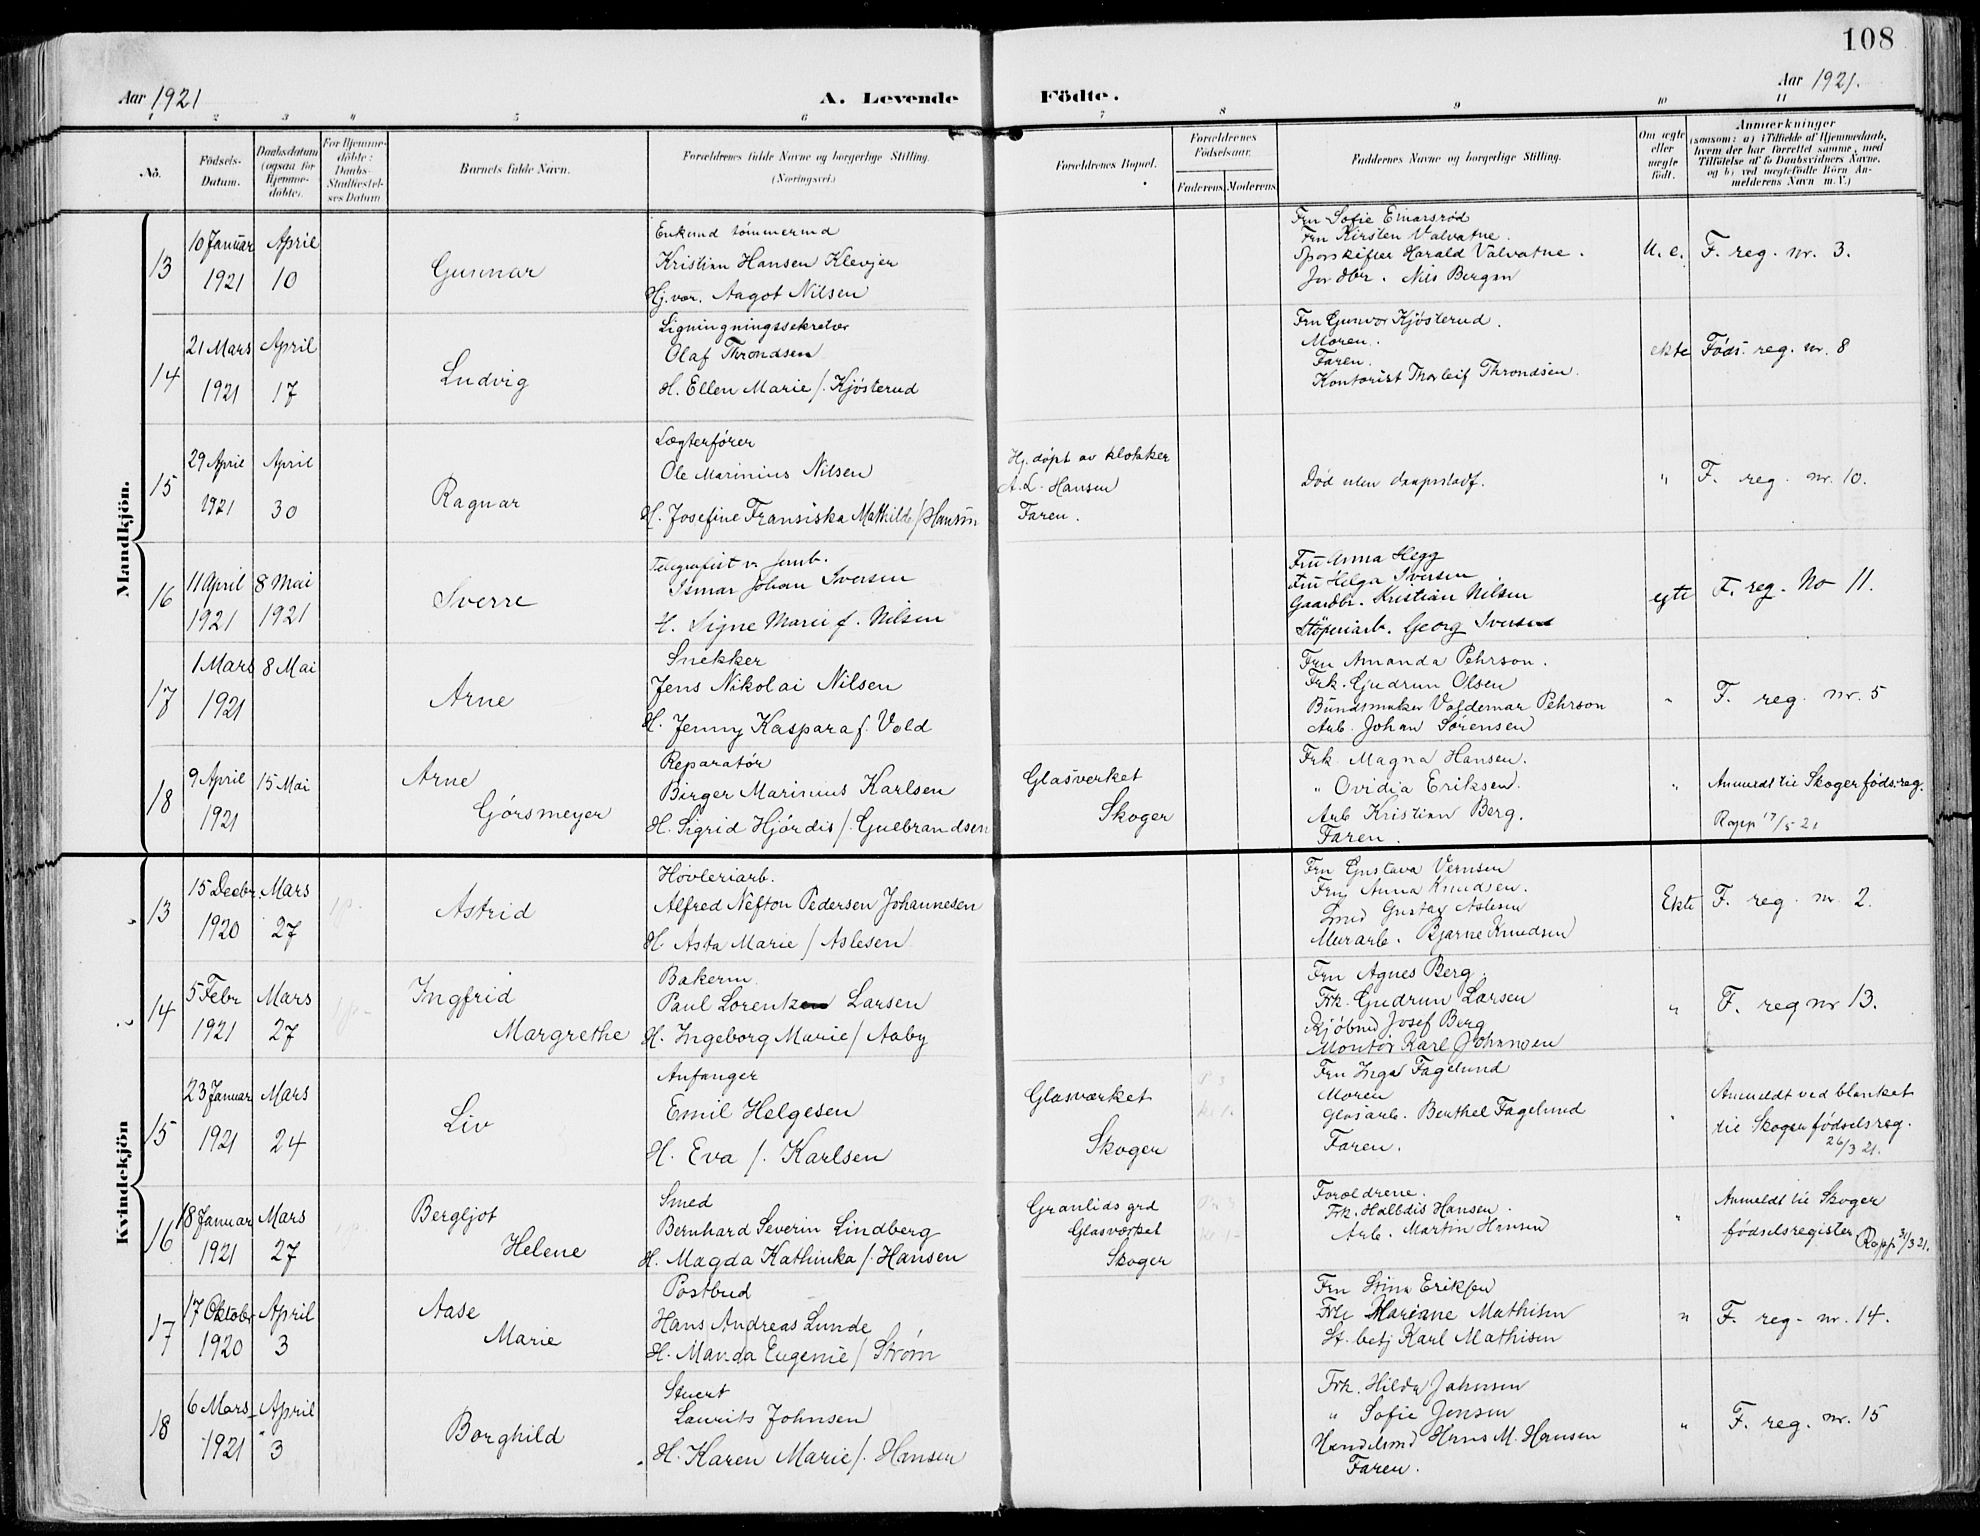 108
Aar 1921
A. Levende Fødte.
Aar 1921.
1 2 3 4 5 6 7 8 9 10 11
No.
Fødsels-
Datum.
Daabsdatum
(ogsaa for
Hjemme-
døbte).
For Hjemme-
døbte:
Daabs-
Stadfæstel-
ses Datum
Barnets fulde Navn.
Forældrenes fulde Navne og borgerlige Stilling.
(Næringsvei.)
Forældrenes Bopæl.
Forældrenes
Fødselsaar.
Faderens. Moderens.
Faddernes Navne og borgerlige Stilling.
Om ægte
eller
uægte
født.
Anmærkninger
(saasom: a) i Tilfælde af Hjemmedaab,
hvem der har forrettet samme, med
Tilføielse af to Daabsvidners Navne.
og b) ved uægtefødte Børn An-
melderens Navn m. V.)
Mandkjön.
13
10 Januar
1921
April
10
Gunnar
Enkemd tømmermd
Kristian Hansen Klevjer
Hj.vær. Aagot Nilsen
Fru Sofie Einarsrød
Fru Kirsten Valvatne.
Sporskifter Harald Valvatne.
Jordbr. Nils Bergan
U. e.
F. reg. nr. 3.
14
21 Mars
1921
April
17
Ludvig
Ligningningssekretær
Olaf Throndsen
H. Ellen Marie f. Kjösterud
Fru Gunvor Kjösterud.
Moren.
Faren.
Kontorist Thorleif Throndsen.
ekte
Föds. reg. nr. 8
15
29 April
1921
April
30
Ragnar
Lægterfører
Ole Marinius Nilsen
H. Josefine Fransiska Mathilde f Hansen
Hj. døpt av klokker
A. L. Hansen
Faren.
Död uten daapsstadf.
"
F. reg. nr. 10.
16
11 April
1921
8 Mai
1921
Sverre
Telegrafist v. Jernb.
Ismar Johan Iversen
H. Signe Marie f. Nilsen
Fru Anna Hegg
Fru Helga Iversen
Gaardbr. Kristian Nilsen
Støperiarb. Georg Iversen
egte
F. reg. No 11.
17
1 Mars
1921
8 Mai
Arne
Snekker
Jens Nikolai Nilsen
H. Jenny Kaspara f. Vold
Fru Amanda Pehrson.
Frk. Gudrun Olsen
Bundtmaker Valdemar Pehrson
Arb. Johan Sørensen
"
F. reg. nr. 5
18
9 April
1921
15 Mai
Arne
Görsmeyer
Reparatør
Birger Marinius Karlsen
H. Sigrid Hjördis f. Gulbrandsen
Glasverket
Skoger
Frk. Magna Hansen.
" Ovidia Eriksen.
Arb Kristian Berg.
Faren.
"
Anmeldt til Skoger föds.reg.
Rapp 17/5 21
Kvindekjön
13
15 Decbr.
1920
Mars
27
Astrid
Høvleriarb.
Alfred Nefton Pedersen Johannesen
H Asta Marie f Aslesen
Fru Gustava Vernsen
Fru Anna Knudsen.
Smed Gustav Aslesen
Murarb. Bjarne Knudsen
Ekte
F. reg. nr. 2.
14
5 Febr
1921
Mars
27
Ingfrid
Margrethe
Bakerm.
Paul Lorentzen Larsen
H. Ingeborg Marie f Aaby
Fru Agnes Berg.
Frk. Gudrun Larsen
Kjöbmd Josef Berg
Montör Karl Johansen
"
F. reg nr 13.
15
23 Januar
1921
Mars
24
Liv
Anfanger
Emil Helgesen
H. Eva f. Karlsen
Glasværket
Skoger
Fru Inga Fagelund
Moren
Glasarb. Berthel Fagelund
Faren.
"
Anmeldt ved blanket
til Skoger födselsreg.
26/3 21.
16
18 Januar
1921
Mars
27
Bergljot
Helene
Smed
Bernhard Severin Lindberg
H. Magda Kathinka f. Hansen
Granlids grd
Glasværket
Skoger
Forældrene.
Frk. Halldis Hansen.
Arb. Martin Hansen
"
Anmeldt til Skoger
födselsregister Rapp 31/3 21.
17
17 Oktobr
1920
April
3
Aase
Marie
Postbud
Hans Andreas Lunde
H. Manda Eugenie f Strøm
Fru Stina Eriksen
Frk Mariane Mathisen
St. betj Karl Mathisen
"
F. reg. nr. 14.
18
6 Mars
1921
April
3
Borghild
Stuert
Laurits Johnsen
H. Karen Marie f. Hansen
Frk. Hilda Johnsen
" Sofie Jensen
Handelsmd Hans M. Hansen
Faren.
"
F. reg. nr. 15